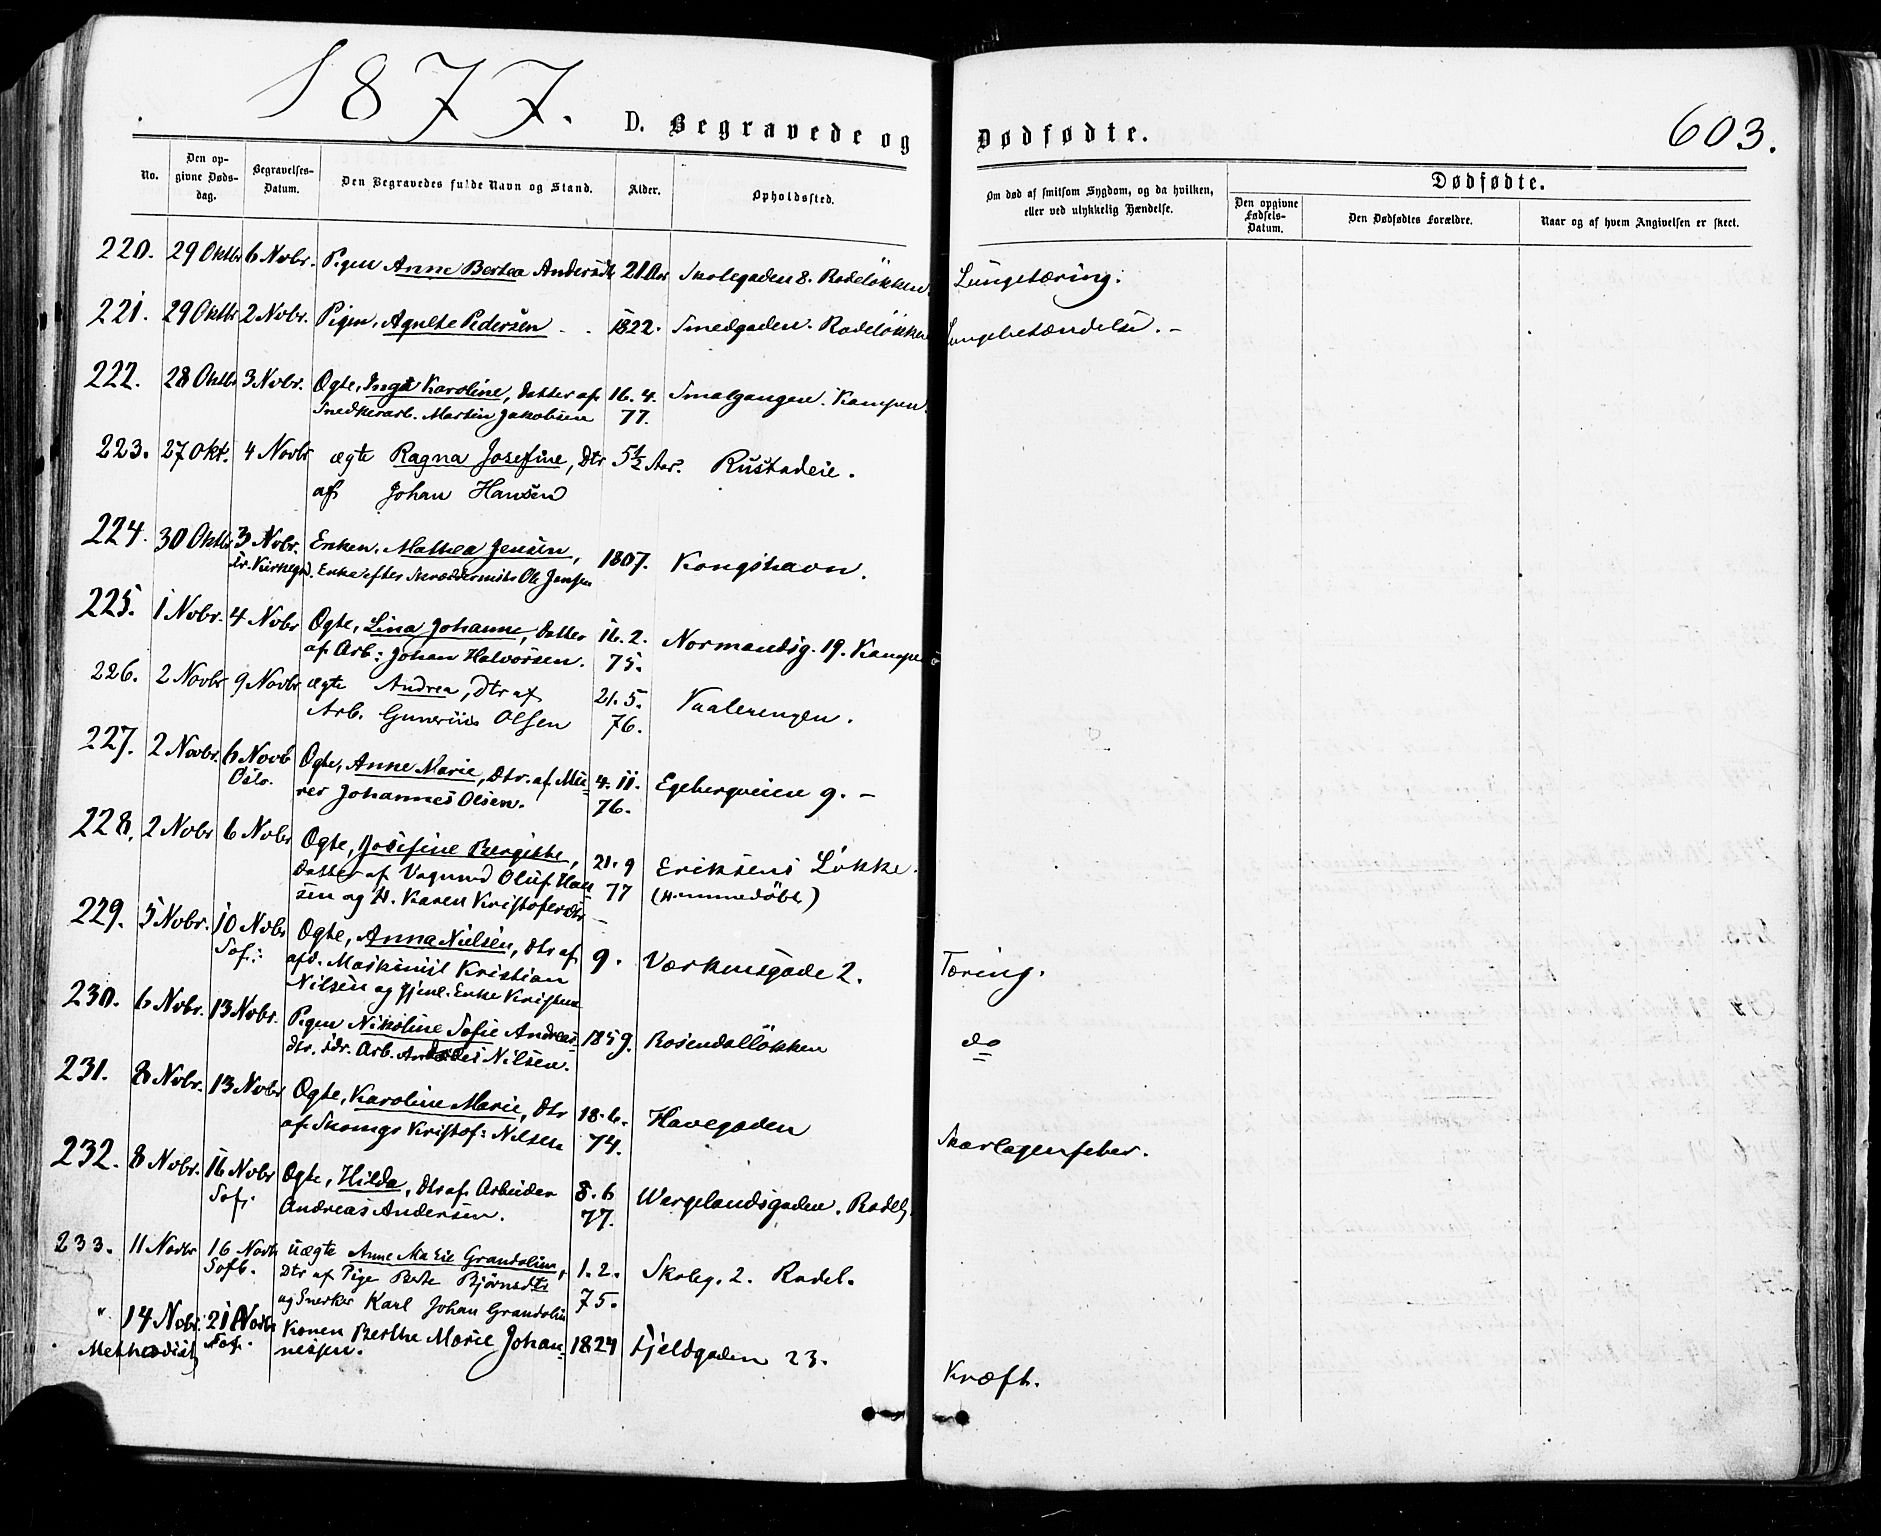 1877.
603.
D. Begravede og Dødfødte.
No.
Den opgivne Dødsdag.
Begravelses-Datum.
Den Begravedes fulde Navn og Stand.
Alder.
Opholdssted.
Om død af smitsom Sygdom, og da hvilken,
eller ved ulykkelig Hændelse.
Dødfødte.
Den opgivne Fødsels-Datum.
Den Dødfødtes Forældre.
Naar og af hvem Angivelsen er skeet.
220. 29 Oktbr 6 Novbr. Pigen Anne Bertea Andersdt 21 Aar Skolegaden 8. Rodeløkken. Lungetæring.
221. 29 Oktbr 2 Novbr. Pigen, Agnethe Pedersen 1822. Smedgaden. Rodeløkken Lungebetændelse. –
222. 28 Oktbr 3 Novbr. Ogte, Inga Karoline, Datter af 16. 4. Smalgangen. Kampen.
Snedkerarb. Martin Jakobsen 77.
223. 27 Okt. 4 Novbr ægte Ragna Josefine, Dtr 5½ Aar. Rustadeie.
af Johan Hansen
224. 30 Oktbr 3 Novbr. Enken, Mathea Jensen, 1807. Kongshavn.
Kirkegd. Enke efter Skræddermstr Ole Jensen
225. 1 Novbr. 4 Novbr Ogte, Lina Johanne, Datter 16. 2. Normandsg. 19. Kampen
af Arb: Johan Halvorsen. 75.
226. 2 Novbr 9 Novbr ægte Andrea, Dtr af 21. 5. Vaalerengen.
Arb. Gunerius Olsen 76.
227. 2 Novbr. 6 Novb Ogte, Anne Marie, Dtr. af Mu- 4. 11. Egebergveien 9. –
Oslo. rer Johannes Olsen. 76.
228. 2 Novbr 6 Novbr Ogte, Josefine Bergitte, 21. 9 Eriksens Løkke.
Datter af Vognmd Oluf Han 77 (Hjemmedøbt)
sen og H. Karen Kristofersdtr –
229. 5 Novbr. 10 Novbr Ogte, Anna Nielsen, Dtr af 9. Værkensgade 2. Tæring.
Sof: afd. Maskinist Kristian
Nilsen og Enke Kristine
230. 6 Novbr. 13 Novbr. Pigen Nikoline Sofie Andreas- 1859. Rosendalløkken do
dtr. Arb. Andreas Nilsen.
231. 8 Novbr. 13 Novbr Ogte, Karoline Marie, Dtr 18. 6. Havegaden Skarlagensfeber.
af Skomgr Kristof: Nilsen 74.
232. 8 Novbr. 16 Novbr Ogte, Hilda, Dtr af Arbeider 8. 6 Wergelandsgaden. Rodel.
Sof: Andreas Andersen. 77.
233. 11 Novbr 16 Novb uægte Anne Marie Grandolin, 1. 2. Skoleg. 2. Rodel.
Sofb. Dtr af Pige Berte Bjørnsdtr 75.
og Snerker Karl Johan Grandolin
" 14 Novbr. 21 Novbr Konen Berthe Marie Johan- 1824 Fjeldgaden 23. Kræft.
Methodist Sof. nessen.